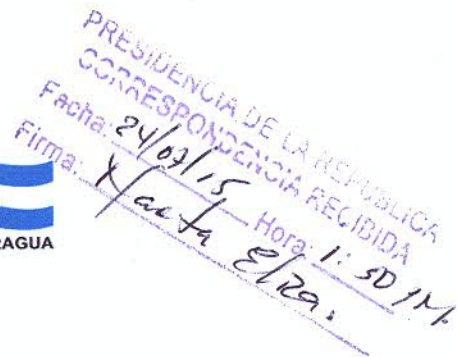 PRESIDENCIA DE LA REPUBLICA
CORRESPONDENCIA RECIBIDA
Fecha: 24/07/15 Hora: 1:50 PM.
Firma: Marta Elza.
RAGUA